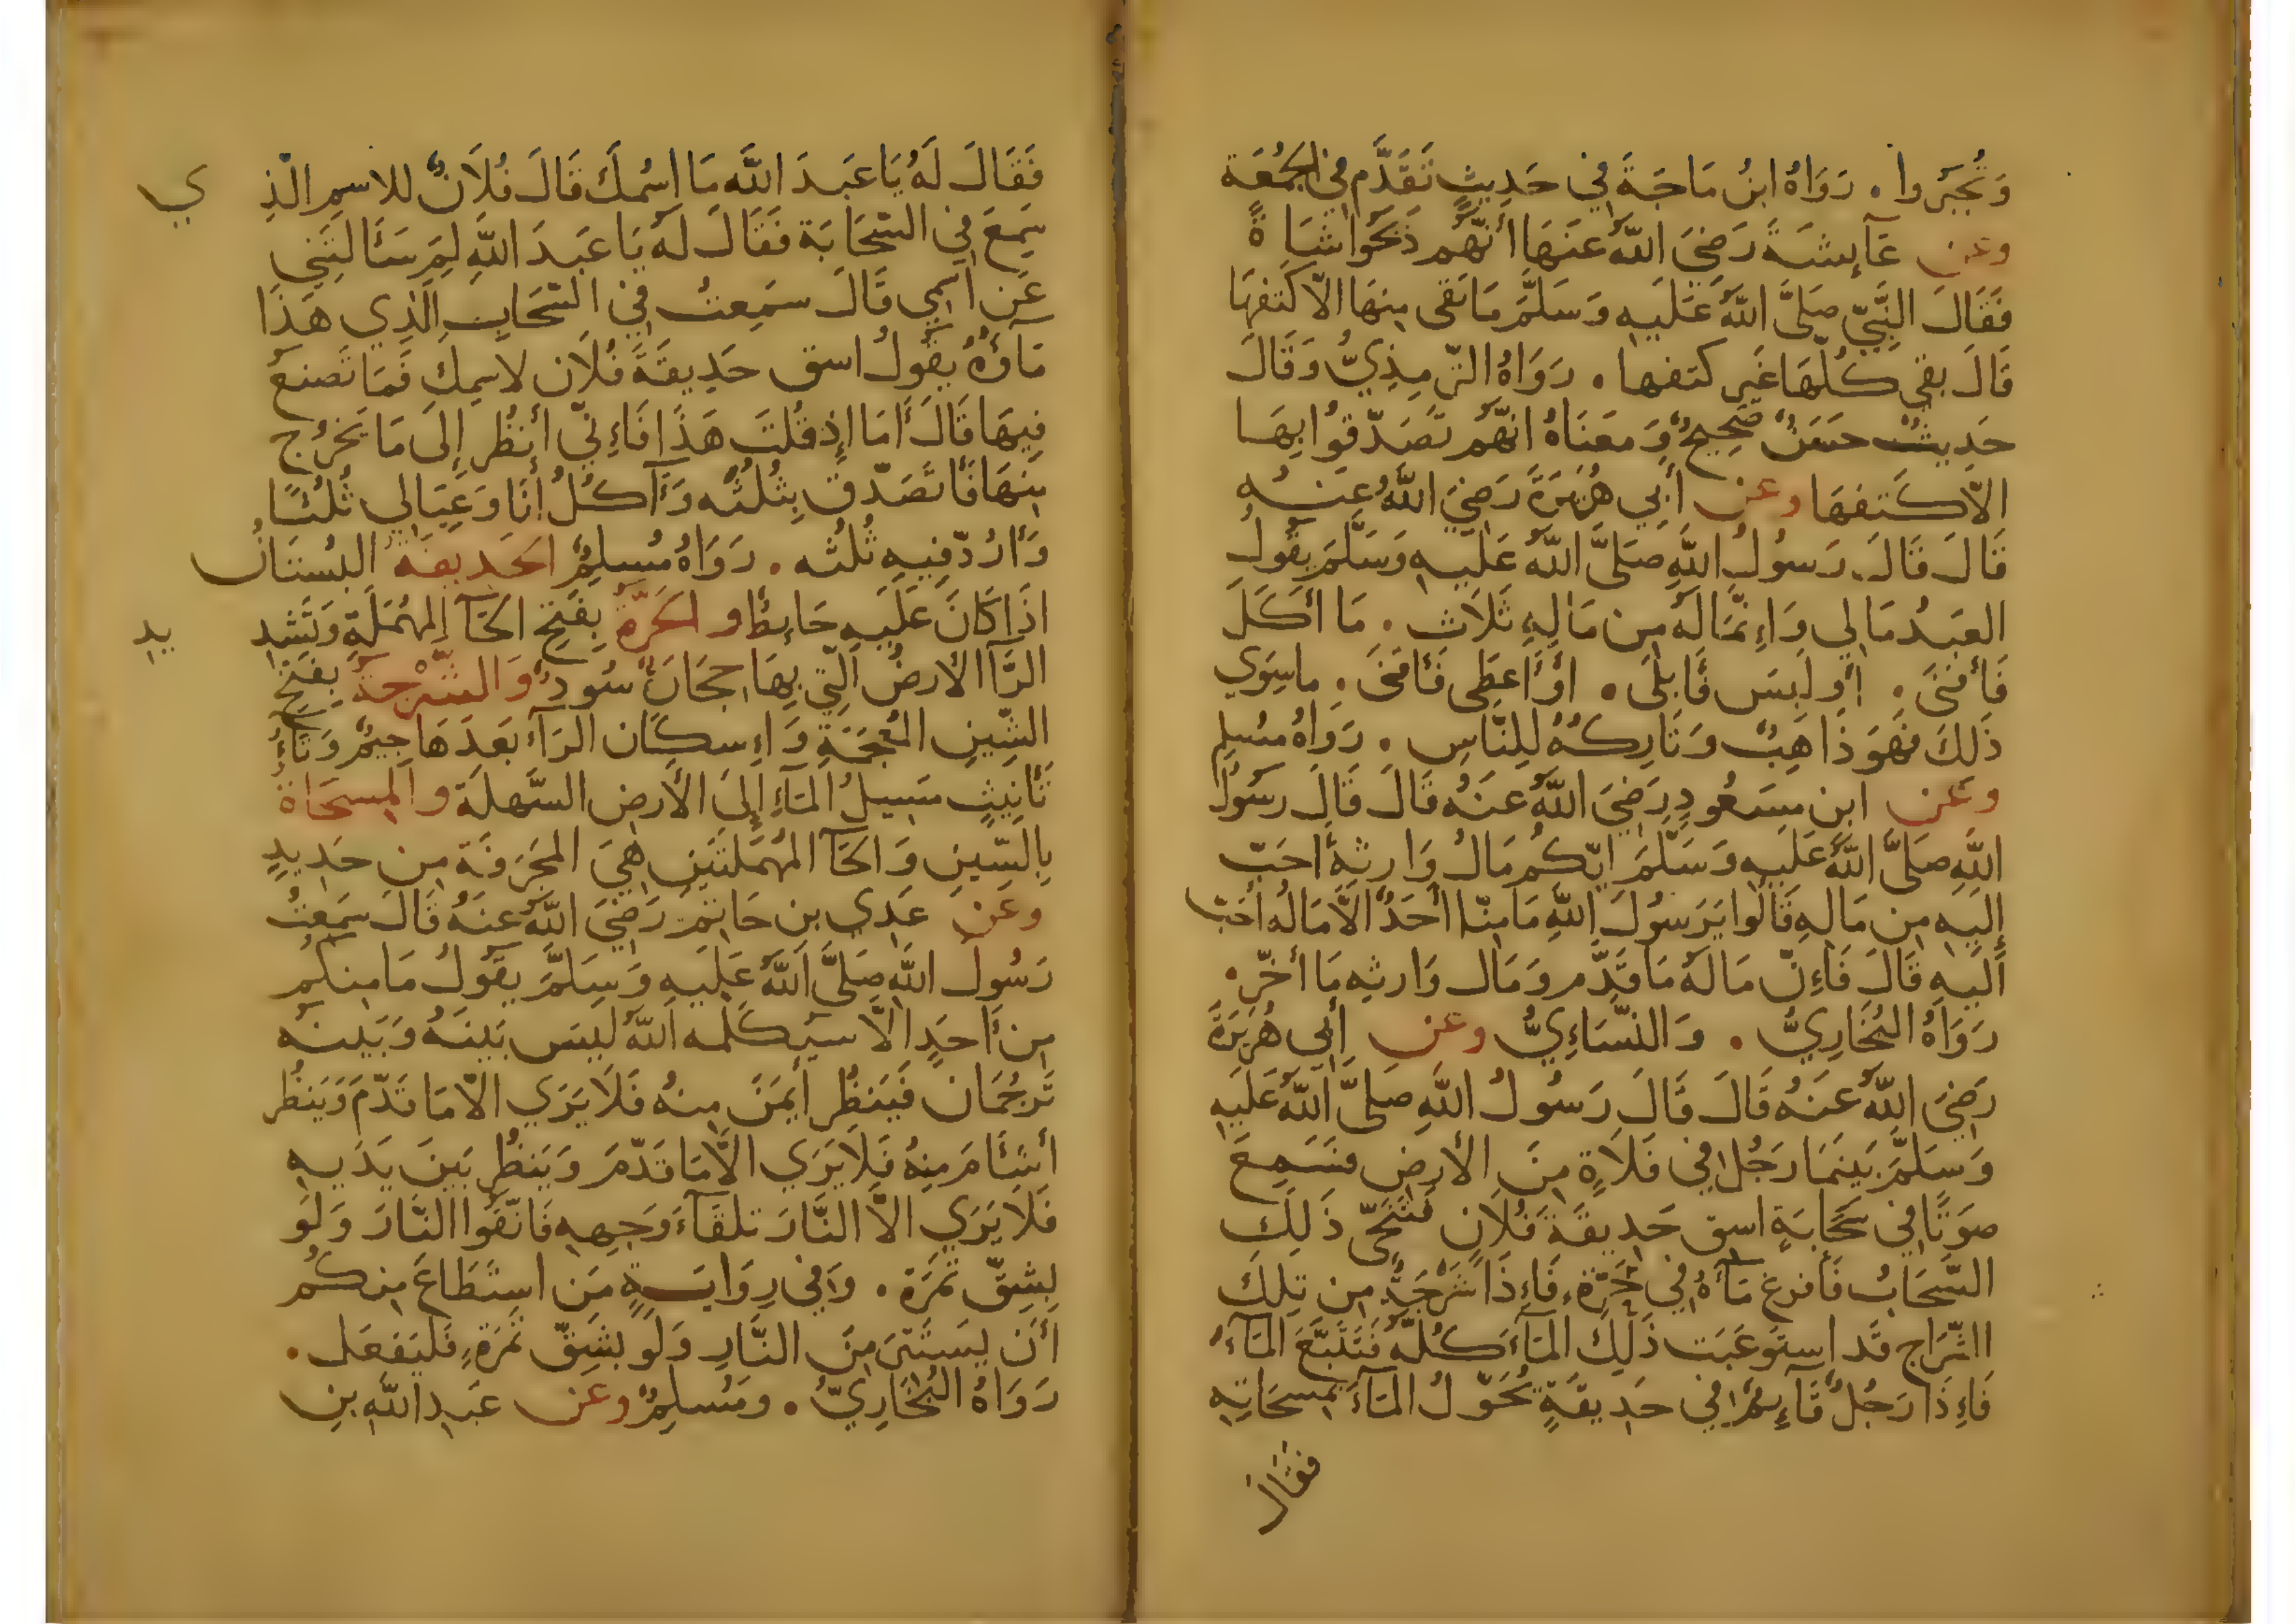 وَتُجبَروا . رَوَاهُ ابنُ مَاجَةَ فِي حَدِيثٍ تَقَدَّم فِي الجُمُعَة
وعن عَآيِشَةَ رَضِيَ اللَّهُ عَنهَا أنَّهُم ذَبَحُوا شَاةً
فَقَالَ النَّبِيّ صَلَّى اللَّهُ عَلَيهِ وَسَلَّمَ مَا بَقى مِنهَا الّا كَتفهَا
قَالَ بقي كُلّهَا غَير كتفها . رَوَاهُ التّرمِذِيُّ وَقَالَ
حَدِيثٌ حَسَنٌ صَحِيحٌ وَمعنَاهُ انّهُم تَصَدّقُوا بِهَا
الّا كَتفهَا وعن أبِي هُرَيرَةَ رَضِيَ اللَّهُ عَنهُ
قَالَ قَالَ رَسُولُ اللَّهِ صَلَّى اللَّهُ عَلَيهِ وَسَلَّمَ يقُولُ
العَبدُ مَالِي وَإِنّمَا لَهُ مِن مَالِهِ ثَلَاث . مَا أكَلَ
فَأفنَى . أو لَبَسَ فَابلَى . أوَأعطِى فَأقنَى . ماسِوَي
ذَلِكَ فَهُوَ ذَاهِبٌ وَتَارِكُهُ لِلنَّاسِ . رَوَاهُ مُسلِم
وعَن ابن مسعُودٍ رَضِيَ اللَّهُ عَنهُ قَالَ قَالَ رسُولُ
اللَّهِ صَلَّى اللَّهُ عَلَيهِ وَسَلَّمَ ايّكُم مَالُ وَارِثِهِ احَبّ
إلَيهِ مِن مَالِهِ قَالُوا يَرَسُولَ اللَّهِ مَا مِنّا أحَدٌ الَّا مَالُه أحَبّ
الَيهِ قَالَ فَإنّ مَالَهُ مَا قَدَّم وَمَال وَارثِهِ مَا أخّر .
رَوَاهُ البُخَارِيُّ . وَالنّسَاءِيُّ وعن أبِي هُرَيرَةَ
رَضِيَ اللَّهُ عَنهُ قَالَ قَالَ رَسُولُ اللَّهِ صَلَّى اللَّهُ عَلَيهِ
وَسَلَّمَ بَينَمَا رَجُل فِي فَلَاةٍ مِنَ الأرضِ فسَمِعَ
صوَتًا فِي سَحَابَةٍ اسق حَدِيقَة فُلَانٍ فَتَنَحّى ذَلِكَ
السَّحَابُ فَأفرغ مَآءَهُ فِي حَرَّةٍ فَإِذَا شَرْجَةٌ مِن تِلكَ
الشّرَاج قَد استَوعَبَت ذَلِكَ المَآءَ كُلّهُ فَتَتَبَّعَ المَآءَ
فَإِذَا رَجُلٌ قَآئِمٌ فِي حَدِيقَةٍ يُحَوّلُ المَآءَ بِمِسحَاتِهِ
فقَال
فَقَالَ لَهُ يَا عَبدَ اللَّهِ مَا اسمُكَ قَالَ فُلَانٌ للاسمِ الّذِ
ي
سَمِعَ فِي السّحَابَة فَقَالَ لَهُ يَا عَبدَ اللَّهِ لِمَ سَئَالتَنِي
عَن اسمِي قَالَ سَمِعتُ فِي السّحَابِ الَّذِي هَذَا
مَآؤُهُ يقُولُ اسق حَدِيقَةَ فُلَان لاسمِكَ فَمَا تَصنَعُ
فِيهَا قَالَ أمَا إِذ قُلتَ هَذَا فَإِنّي أنظُر إلَى مَا يَخرُج
مِنهَا فَأتَصَدّق بِثُلثُه وَآكُلُ أنَا وَعِيَالِي ثُلثًا
وَأرُدّ فِيهِ ثُلثُه . رَوَاهُ مُسلِمٌ الحَديقَهُ البُستَانُ
اذَا كَانَ عَلَيهِ حَائِطٌ و الحَرَّةُ بِفَتحِ الحَآ المُهمَلَةِ وَتَشدِ
يد
الرَّآ الأرضُ الَّتِي بِهَا حِجَارَةٌ سُودٌ وَالشَّرْجَةُ بِفَتحِ
الشّينِ المُعجَمَةِ وَإِسكَان الرَآءِ بَعدَهَا جِيمٌ وَتَآءُ
تَأنِيثٍ مَسِيلُ المَآءِ إلَى الأرضِ السَّهلَة والمِسحَاةُ
بِالسّينِ وَالحَآ المُهمَلَتَينِ هِيَ المِجرَفَة مِن حَدِيدٍ
وعَن عَدِي بن حَاتِمٍ رَضِيَ اللَّهُ عَنهُ قَالَ سَمِعتُ
رَسُولَ اللَّهِ صَلَّى اللَّهُ عَلَيهِ وَسَلَّمَ يقُولُ مَا مِنكُم
مِن أحَدٍ الَّا سَيُكَلّمه اللَّهُ لَيسَ بَينَهُ وَبَينَهُ
تَرجُمَان فَيَنظُر أيمَنَ مِنهُ فَلَا يَرَي الّا مَا قَدّمَ وَيَنظُر
أشئَامَ مِنهُ فَلَا يَرَي الَّا مَا قَدّمَ وَيَنظُر بَينَ يَدَيهِ
فَلَا يَرَي الَّا النَّارَ تلقَآءَ وَجهِهِ فَاتّقوا النَّارَ وَلَو
بِشِقّ تَمرَة . وَفِي رِوَايَةٍ مَن استَطَاعَ مِنكُم
أن يَستَتِرَ مِنَ النَّارِ وَلَو بشِقّ تَمرَةٍ فَليَفعَل .
رَوَاهُ البُخَارِيُّ . ومُسلِمٌ وعَن عَبدِ اللَّهِ بنِ